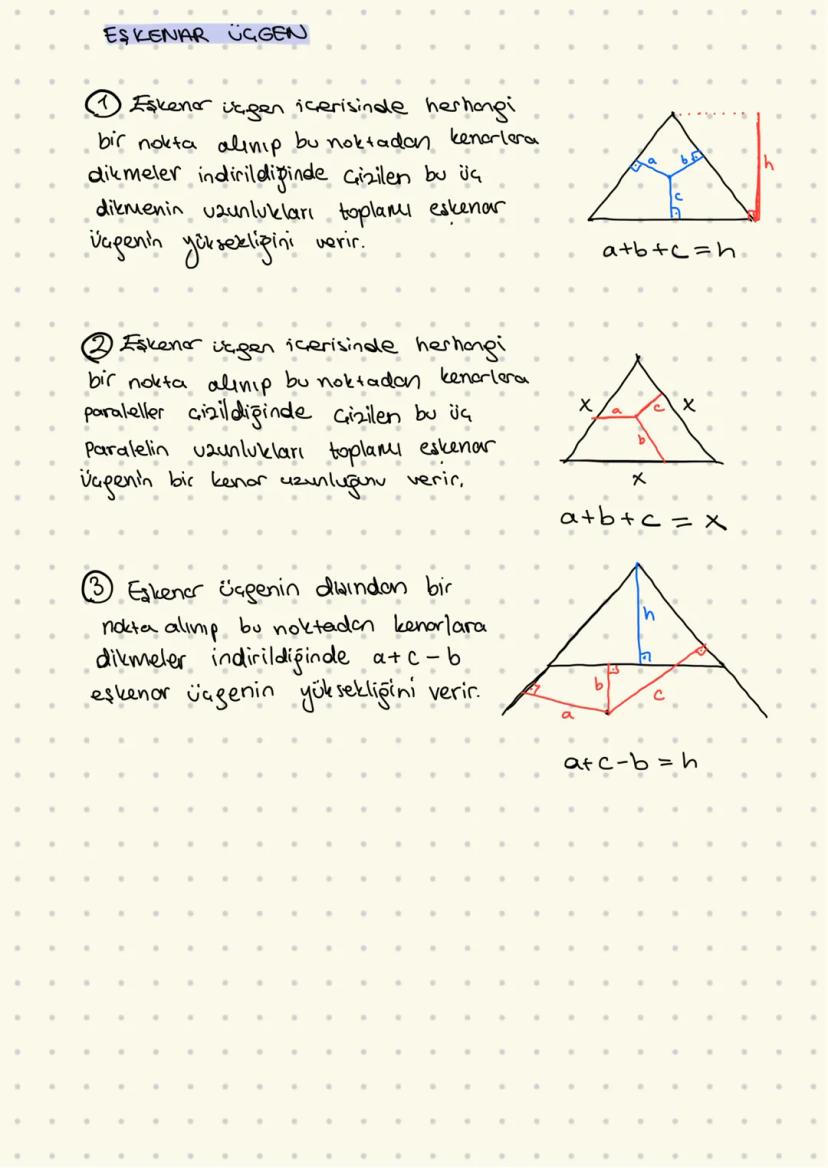 EŞKENAR ÜÇGEN
① Eşkenar üçgen içerisinde herhangi
bir nokta alınıp bu noktadan kenarlara
dikmeler indirildiğinde çizilen bu üç
dikmenin uzunlukları toplamı eşkenar
üçgenin yüksekliğini verir.
a
b
c
h
a+b+c=h
② Eşkenar üçgen içerisinde herhangi
bir nokta alınıp bu noktadan kenarlara
paraleller çizildiğinde çizilen bu üç
Paralelin uzunlukları toplamı eşkenar
üçgenin bir kenar uzunluğunu verir.
x
a
c
x
b
x
a+b+c = x
③ Eşkenar üçgenin dışından bir
nokta alınıp bu noktadan kenarlara
dikmeler indirildiğinde a+c-b
eşkenar üçgenin yüksekliğini verir.
h
b
c
a
a+c-b = h